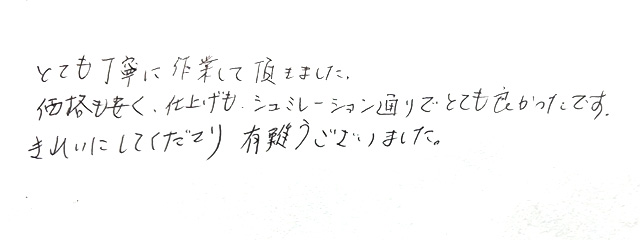 とても丁寧に作業して頂きました.
価格も安く、仕上げも、シュミレーション通りでとても良かったです.
きれいにしてくださり 有難うございました。